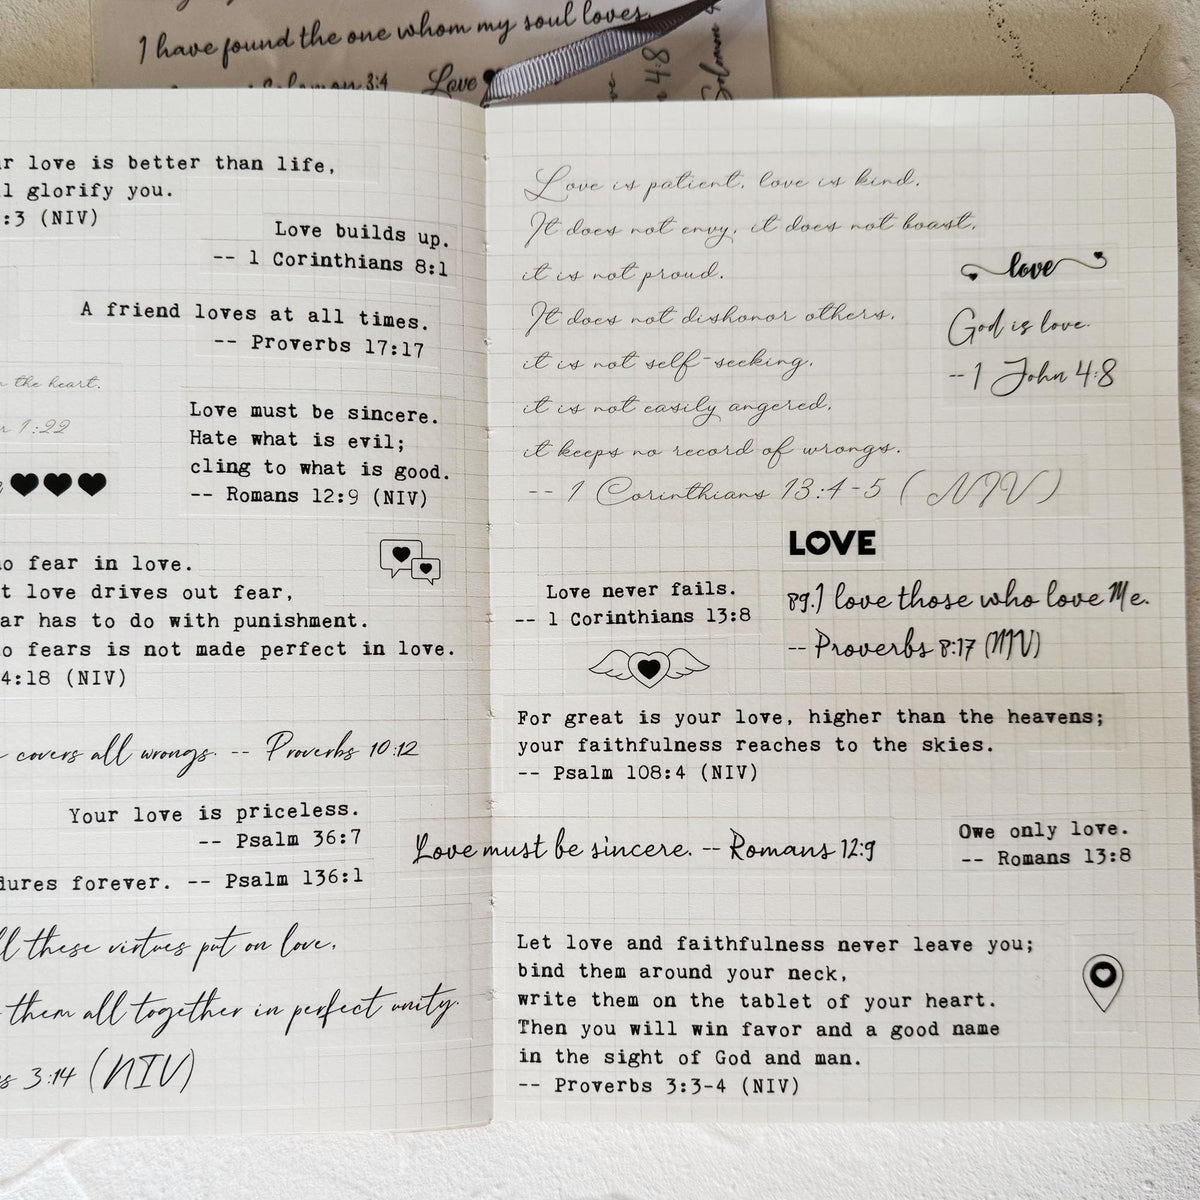 I have found the one whom my soul loves.
Solomon 3:4 Love
4:8
Solomon
love is better than life,
glorify you.
:3 (NIV)
Love builds up.
-- 1 Corinthians 8:1
A friend loves at all times.
-- Proverbs 17:17
the heart.
1:22
Love must be sincere.
Hate what is evil;
cling to what is good.
-- Romans 12:9 (NIV)
fear in love.
love drives out fear,
has to do with punishment.
fears is not made perfect in love.
4:18 (NIV)
covers all wrongs. -- Proverbs 10:12
Your love is priceless.
-- Psalm 36:7
forever. -- Psalm 136:1
these virtues put on love,
them all together in perfect unity.
3:14 (NIV)
Love is patient, love is kind.
It does not envy, it does not boast,
it is not proud.
It does not dishonor others,
it is not self-seeking,
it is not easily angered,
it keeps no record of wrongs.
-- 1 Corinthians 13:4-5 (NIV)
love
God is love.
-- 1 John 4:8
LOVE
Love never fails.
-- 1 Corinthians 13:8
89.I love those who love Me.
-- Proverbs 8:17 (NIV)
For great is your love, higher than the heavens;
your faithfulness reaches to the skies.
-- Psalm 108:4 (NIV)
Love must be sincere. -- Romans 12:9
Owe only love.
-- Romans 13:8
Let love and faithfulness never leave you;
bind them around your neck,
write them on the tablet of your heart.
Then you will win favor and a good name
in the sight of God and man.
-- Proverbs 3:3-4 (NIV)